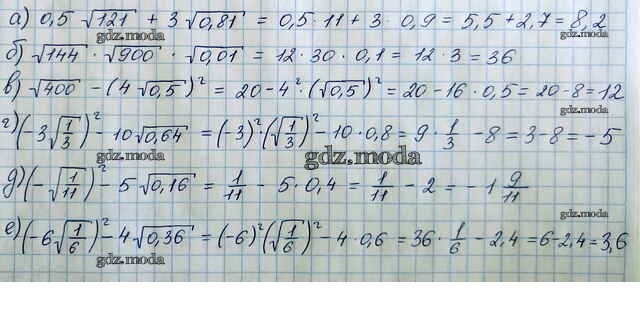 а) 0,5 √121 + 3 √0,81 = 0,5·11 + 3 · 0,9 = 5,5 + 2,7 = 8,2
gdz.moda gdz.moda
б) √144 · √900 · √0,01 = 12 · 30 · 0,1 = 12 · 3 = 36
в) √400 − (4 √0,5)² = 20 − 4² · (√0,5)² = 20 − 16 · 0,5 = 20 − 8 = 12
gdz.moda
г) (−3√1/3)² − 10√0,64 = (−3)²·(√1/3)² − 10 · 0,8 = 9 · 1/3 − 8 = 3 − 8 = − 5
gdz.moda gdz.moda
д) (−√1/11)² − 5 · √0,16 = 1/11 − 5 · 0,4 = 1/11 − 2 = − 1 9/11
gdz.moda
е) (−6√1/6)² − 4√0,36 = (−6)²(√1/6)² − 4 · 0,6 = 36 · 1/6 − 2,4 = 6 − 2,4 = 3,6
gdz.moda gdz.moda